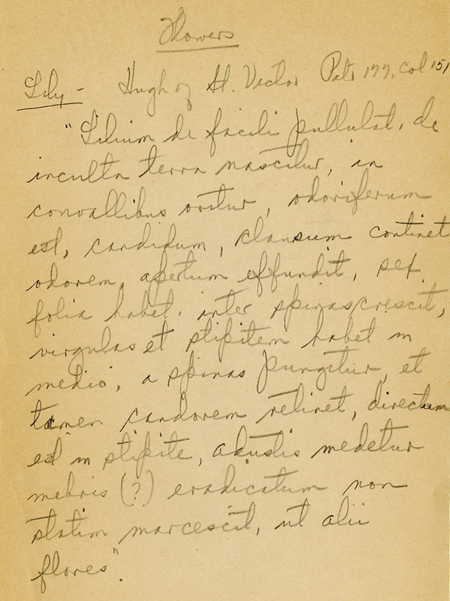 Flowers
Lily - Hugh of St. Victor Patr 177, col 151
"Lilium de facili pullulat, de
inculta terra nascitur, in
convallibus oritur, odoriferum
est, candidum, clausum continet
odorem, apertum effundit, sex
folia habet. inter spinas crescit,
virgulas et stipitem habet in
medio, a spinas pungitur, et
tamen candorem retinet, directum
est in stipite, adustis medetur
mebris (?) eradicatum non
statim marcescit, ut alii
flores".